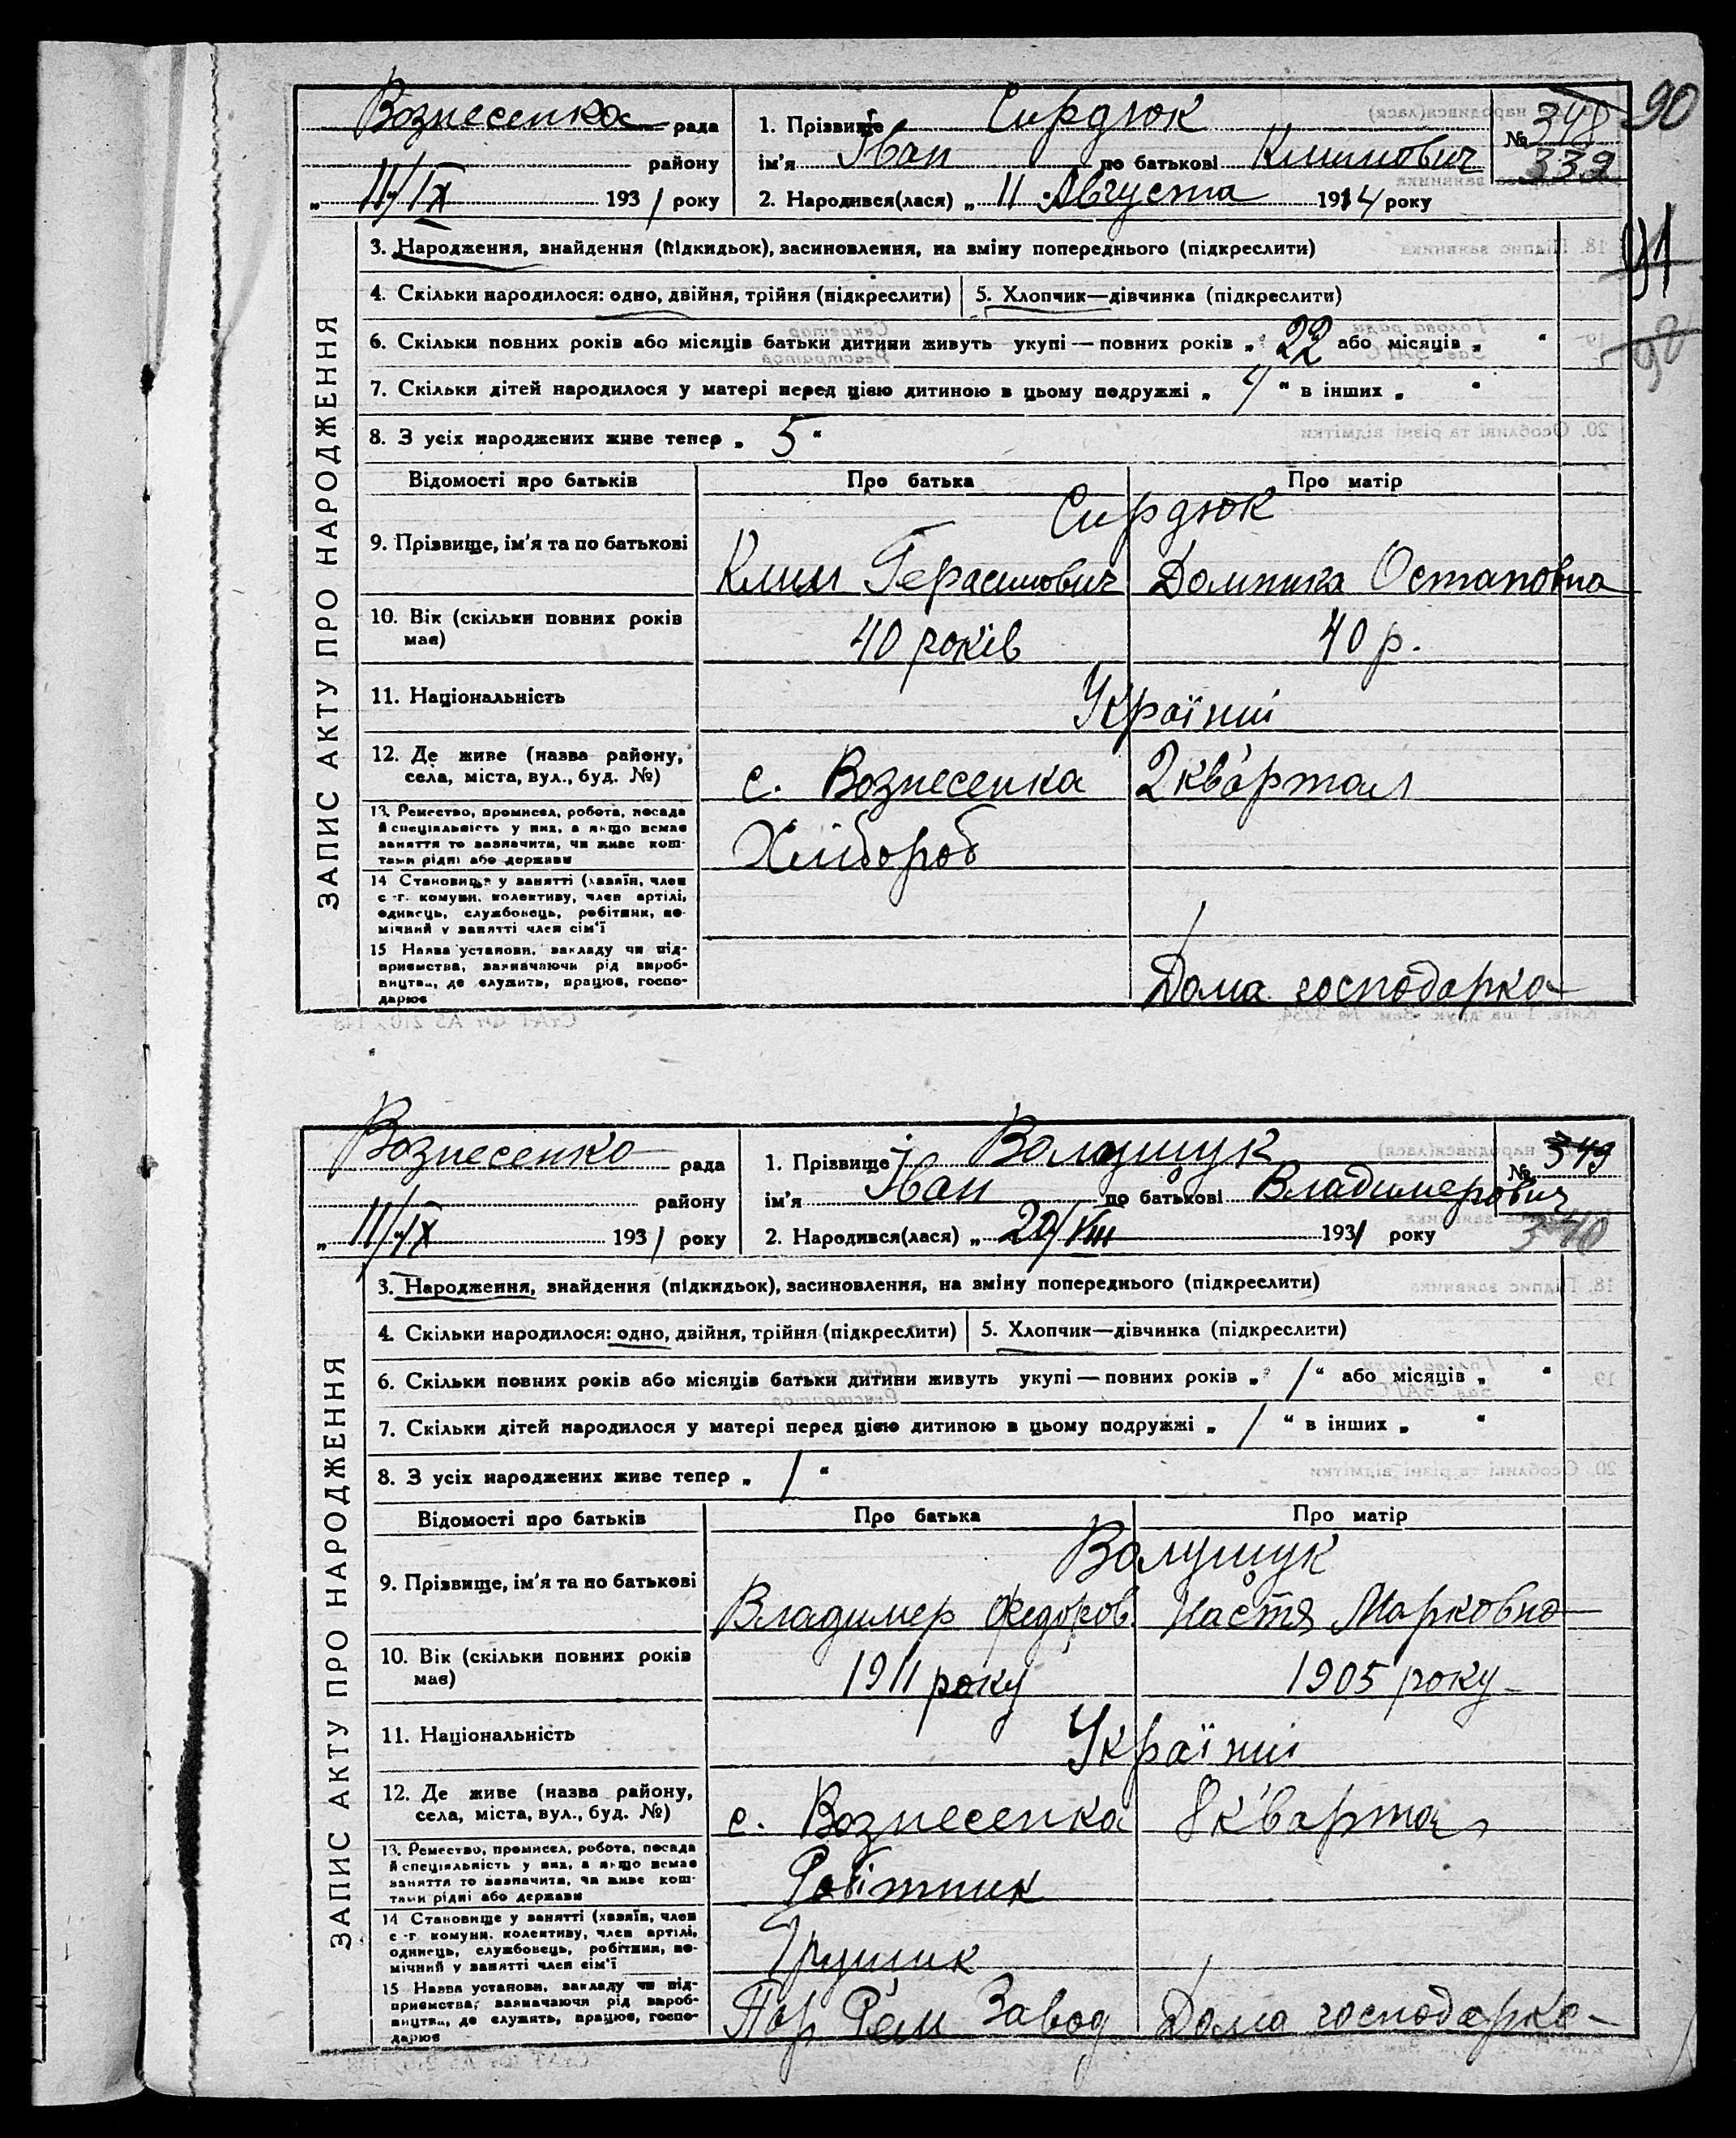 90
Вознесенка рада
району
„ 11/IX 1931 року
1. Прізвище Сирдюк
ім'я Іван по батькові Климович
2. Народився(лася) „ 11 Августа 1914 року
№ 348
339
91
90
ЗАПИС АКТУ ПРО НАРОДЖЕННЯ
3. Народження, знайдення (підкидьок), засиновлення, на зміну попереднього (підкреслити)
4. Скільки народилося: одно, двійня, трійня (підкреслити) 5. Хлопчик—дівчинка (підкреслити)
6. Скільки повних років або місяців батьки дитини живуть укупі — повних років „ 22 або місяців „ “
7. Скільки дітей народилося у матері перед цією дитиною в цьому подружжі „ 4 “ в інших „ “
8. З усіх народжених живе тепер „ 5 “
Відомості про батьків Про батька Про матір
Сирдюк
9. Прізвище, ім'я та по батькові Клим Герасимович Домника Остаповна
10. Вік (скільки повних років має) 40 років 40 р.
11. Національність Українці
12. Де живе (назва району,
села, міста, вул., буд. №) с. Вознесенка 2 квартал
13. Ремество, промисел, робота, посада
й спеціальність у них, а якщо немає
заняття то зазначити, чи живе кош-
тами рідні або держави
Хлібороб
14 Становище у занятті (хазяїн, член
с.-г. комуни, колективу, член артілі,
одинець, службовець, робітник, по-
мічний у занятті член сім'ї
15 Назва установи, закладу чи під-
приємства, зазначаючи рід вироб-
ництва, де служить, працює, госпо-
дарює
Дома господарка
Вознесенка рада
району
„ 11/IX 1931 року
1. Прізвище Волущук
ім'я Іван по батькові Владимерович
2. Народився(лася) „ 20/VIII 1931 року
№ 349
340
ЗАПИС АКТУ ПРО НАРОДЖЕННЯ
3. Народження, знайдення (підкидьок), засиновлення, на зміну попереднього (підкреслити)
4. Скільки народилося: одно, двійня, трійня (підкреслити) 5. Хлопчик—дівчинка (підкреслити)
6. Скільки повних років або місяців батьки дитини живуть укупі — повних років „ 1 “ або місяців „ “
7. Скільки дітей народилося у матері перед цією дитиною в цьому подружжі „ 1 “ в інших „ “
8. З усіх народжених живе тепер „ 1 “
Відомості про батьків Про батька Про матір
Волущук
9. Прізвище, ім'я та по батькові Владимер Федоров. Настя Марковна
10. Вік (скільки повних років має) 1911 року 1905 року
11. Національність Українці
12. Де живе (назва району,
села, міста, вул., буд. №) с. Вознесенка 8 квартал
13. Ремество, промисел, робота, посада
й спеціальність у них, а якщо немає
заняття то зазначити, чи живе кош-
тами рідні або держави
Робітник
14 Становище у занятті (хазяїн, член
с.-г. комуни, колективу, член артілі,
одинець, службовець, робітник, по-
мічний у занятті член сім'ї
15 Назва установи, закладу чи під-
приємства, зазначаючи рід вироб-
ництва, де служить, працює, госпо-
дарює
Рем Завод Дома господарка